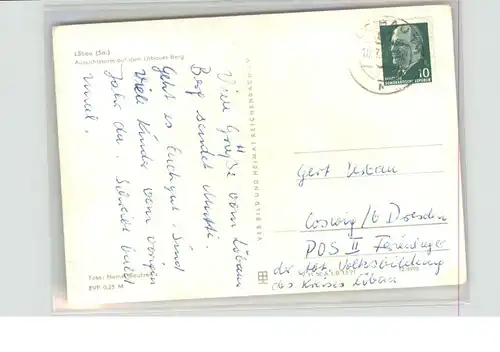 Löbau (Sa.)
Aussichtsturm auf dem Löbauer Berg
Viele Grüße vom Löbauer
Berg sendet Mutti.
Geht es Euch gut. Sind
viele Kinder vom vorigen
Jahr da. Schreibt bald
mal.
Foto:
EVP 0,25 M
VEB BILD UND HEIMAT REICHENBACH i. V.
10
DEUTSCHE DEMOKRATISCHE REPUBLIK
Gert Urban
Coswig/b Dresden
POS II Ferienlager
der Abt. Volksbildung
des Kreises Löbau